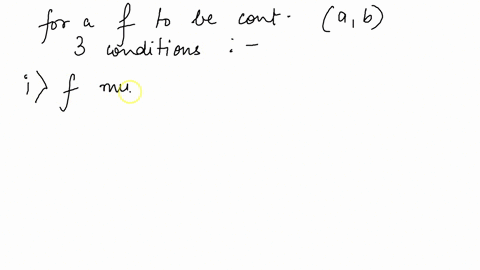 for a f to be cont. (a, b)
3 conditions : -
i> f mu